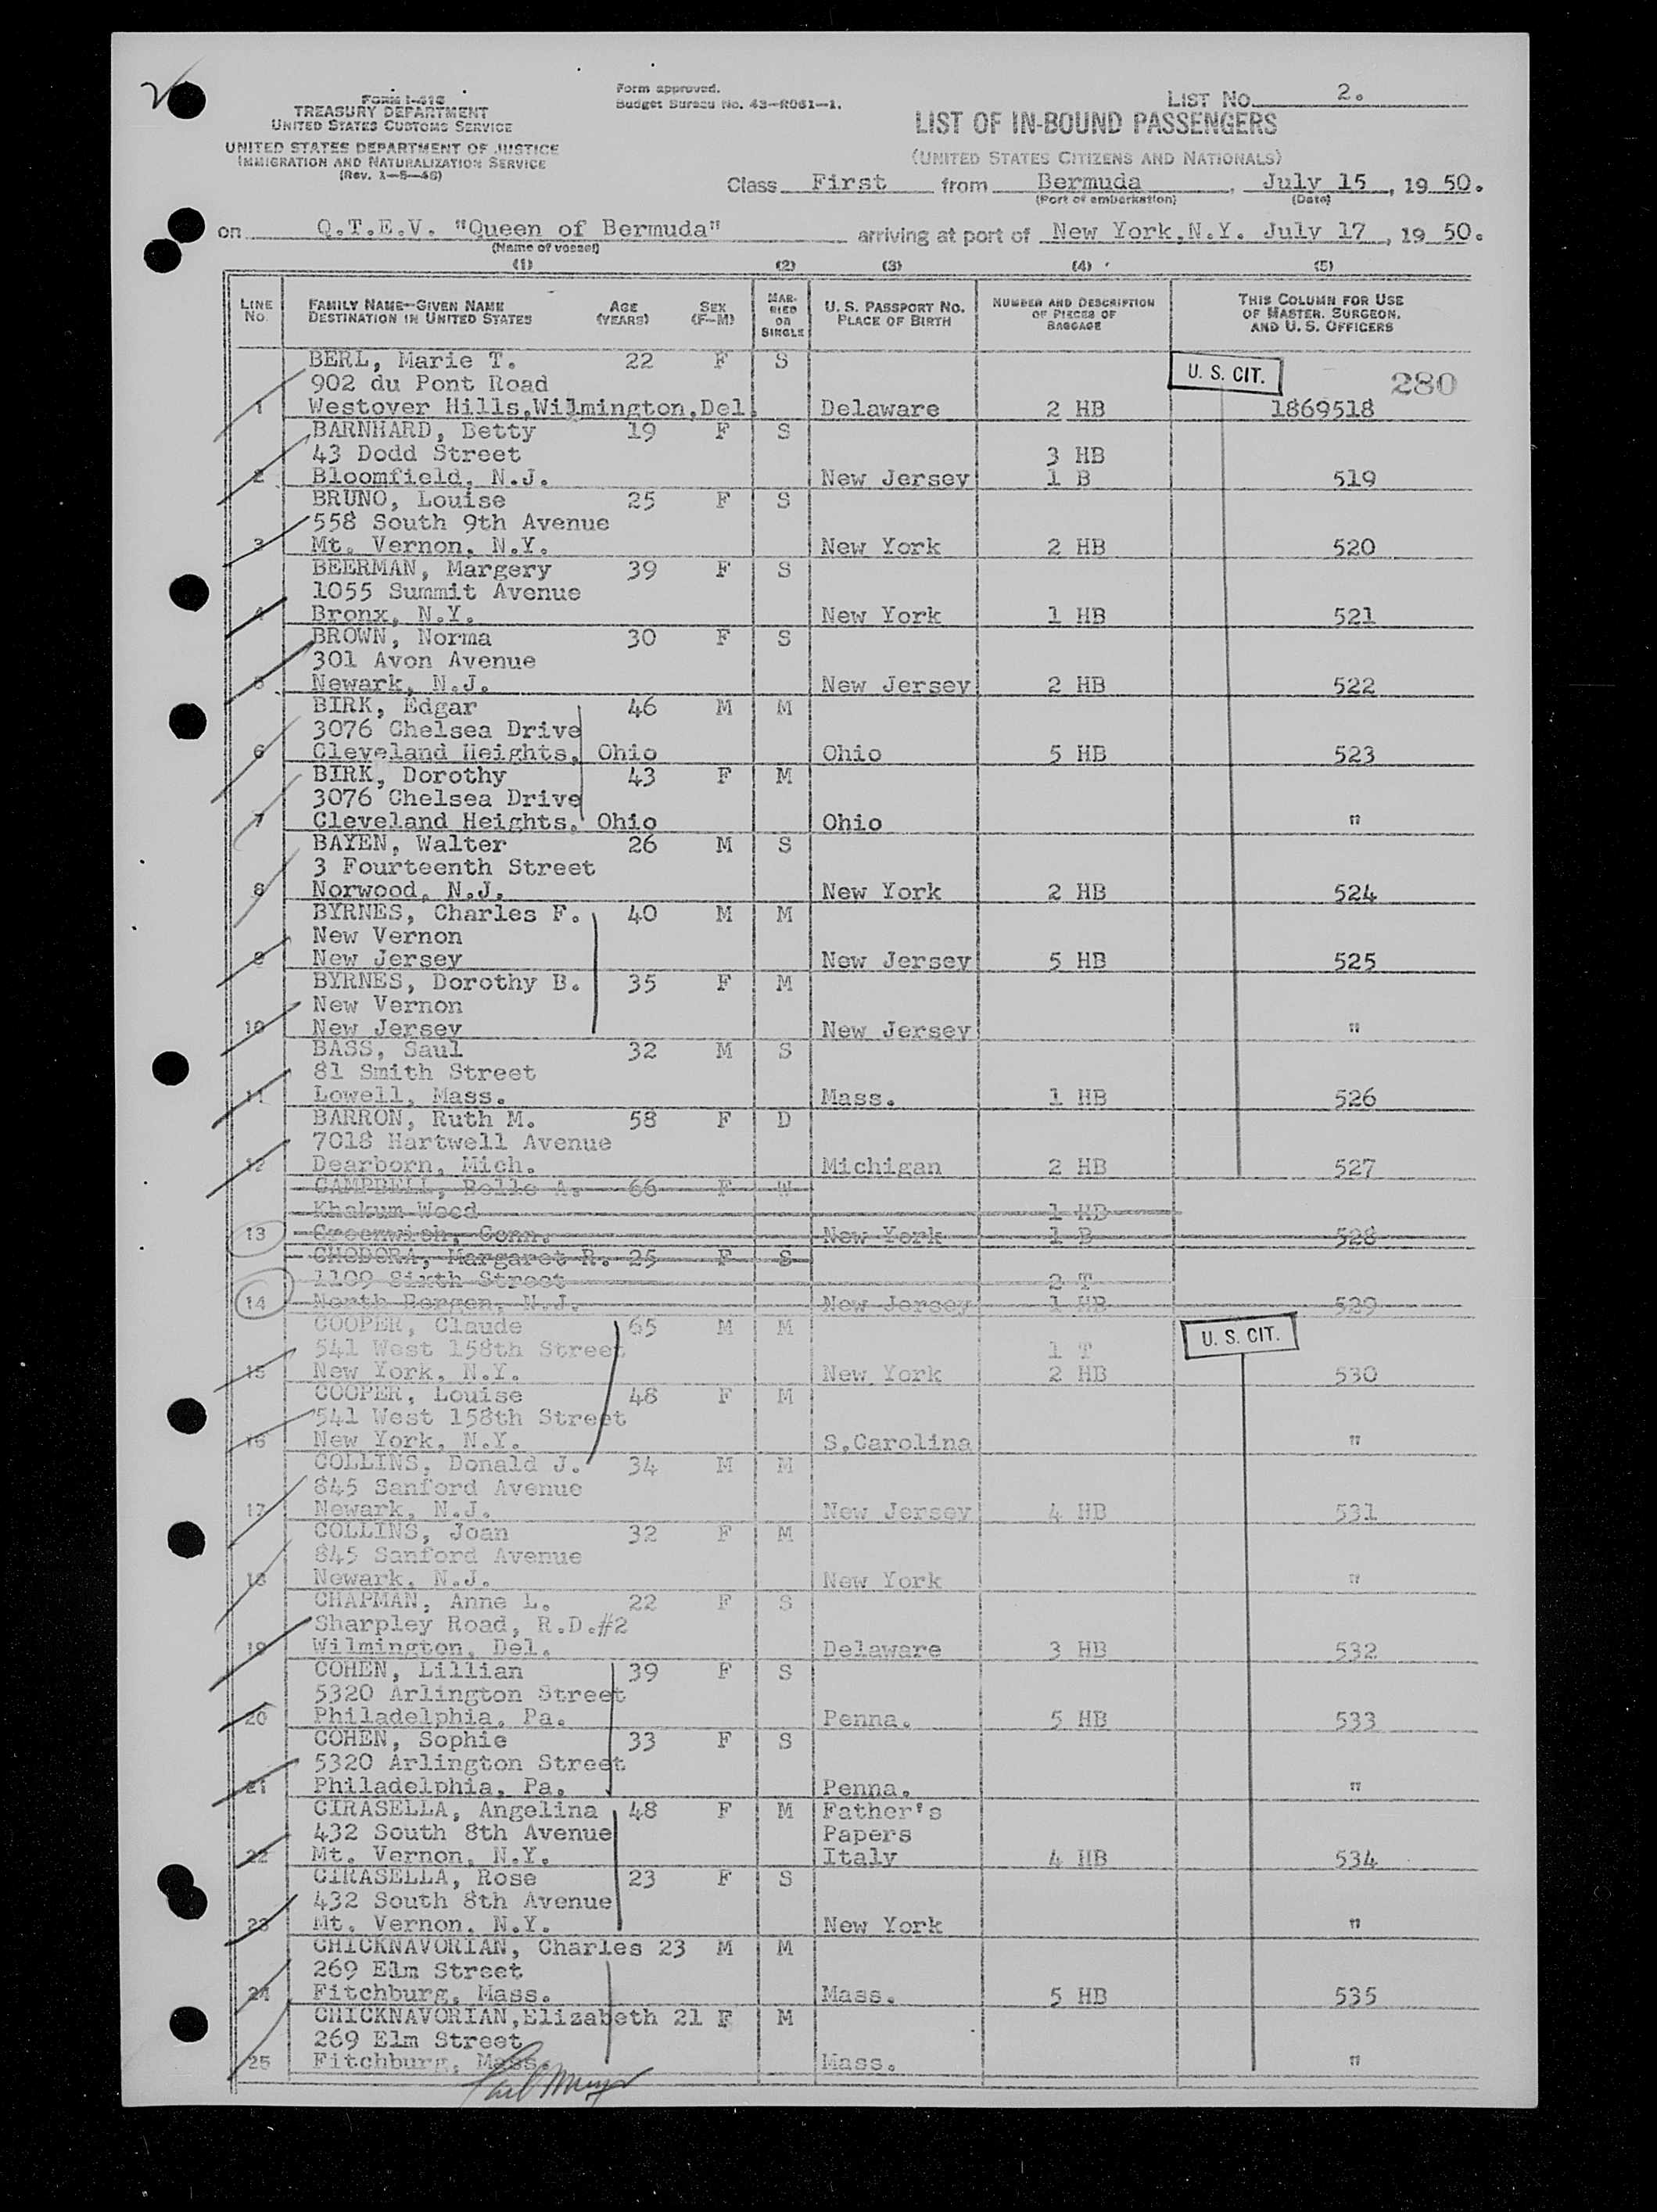 2
Form I-418
TREASURY DEPARTMENT
UNITED STATES CUSTOMS SERVICE
UNITED STATES DEPARTMENT OF JUSTICE
IMMIGRATION AND NATURALIZATION SERVICE
Form approved.
Budget Bureau No. 43—R061—1.
LIST No. 2.
LIST OF IN-BOUND PASSENGERS
(UNITED STATES CITIZENS AND NATIONALS)
Class First from Bermuda, July 15, 1950.
(Port of embarkation) (Date)
on Q.T.E.V. "Queen of Bermuda" arriving at port of New York,N.Y. July 17, 1950.
(Name of vessel)
(1) (2) (3) (4) (5)
LINE No. FAMILY NAME—GIVEN NAME DESTINATION IN UNITED STATES AGE (YEARS) SEX (F—M) MARRIED OR SINGLE U. S. PASSPORT NO. PLACE OF BIRTH NUMBER AND DESCRIPTION OF PIECES OF BAGGAGE THIS COLUMN FOR USE OF MASTER, SURGEON, AND U. S. OFFICERS
BERL, Marie T. 22 F S
902 du Pont Road U. S. CIT. 280
1 Westover Hills,Wilmington,Del. Delaware 2 HB 1869518
BARNHARD, Betty 19 F S
43 Dodd Street 3 HB
2 Bloomfield, N.J. New Jersey 1 B 519
BRUNO, Louise 25 F S
558 South 9th Avenue
3 Mt. Vernon, N.Y. New York 2 HB 520
BEERMAN, Margery 39 F S
1055 Summit Avenue
4 Bronx, N.Y. New York 1 HB 521
BROWN, Norma 30 F S
301 Avon Avenue
5 Newark, N.J. New Jersey 2 HB 522
BIRK, Edgar 46 M M
3076 Chelsea Drive
6 Cleveland Heights, Ohio Ohio 5 HB 523
BIRK, Dorothy 43 F M
3076 Chelsea Drive
7 Cleveland Heights, Ohio Ohio "
BAYEN, Walter 26 M S
3 Fourteenth Street
8 Norwood, N.J. New York 2 HB 524
BYRNES, Charles F. 40 M M
New Vernon
9 New Jersey New Jersey 5 HB 525
BYRNES, Dorothy B. 35 F M
New Vernon
10 New Jersey New Jersey "
BASS, Saul 32 M S
81 Smith Street
11 Lowell, Mass. Mass. 1 HB 526
BARRON, Ruth M. 58 F D
7018 Hartwell Avenue
12 Dearborn, Mich. Michigan 2 HB 527
CAMPBELL, Belle A. 66 F W
Khakum Wood 1 HB
13 Greenwich, Conn. New York 1 B 528
CHODORA, Margaret R. 25 F S
1109 Sixth Street 2 T
14 North Bergen, N.J. New Jersey 1 HB 529
COOPER, Claude 65 M M
541 West 158th Street 1 T U. S. CIT.
15 New York, N.Y. New York 2 HB 530
COOPER, Louise 48 F M
541 West 158th Street
16 New York, N.Y. S.Carolina "
COLLINS, Donald J. 34 M M
845 Sanford Avenue
17 Newark, N.J. New Jersey 4 HB 531
COLLINS, Joan 32 F M
845 Sanford Avenue
18 Newark, N.J. New York "
CHAPMAN, Anne L. 22 F S
Sharpley Road, R.D.#2
19 Wilmington, Del. Delaware 3 HB 532
COHEN, Lillian 39 F S
5320 Arlington Street
20 Philadelphia, Pa. Penna. 5 HB 533
COHEN, Sophie 33 F S
5320 Arlington Street
21 Philadelphia, Pa. Penna. "
CIRASELLA, Angelina 48 F M Father's
432 South 8th Avenue Papers
22 Mt. Vernon, N.Y. Italy 4 HB 534
CIRASELLA, Rose 23 F S
432 South 8th Avenue
23 Mt. Vernon, N.Y. New York "
CHICKNAVORIAN, Charles 23 M M
269 Elm Street
24 Fitchburg, Mass. Mass. 5 HB 535
CHICKNAVORIAN,Elizabeth 21 F M
269 Elm Street
25 Fitchburg, Mass. Mass. "